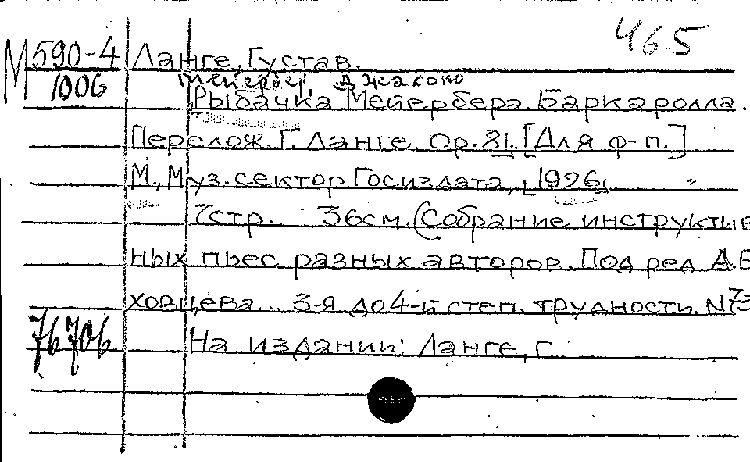 465
М 590-4 Ланге, Густав.
1006 Мейербер, Джакомо
Рыбачка Мейербера. Баркаролла.
Перелож. Г. Ланге. Ор. 81. [Для ф-п.]
М., Муз. сектор Госиздата, [1926]
7стр. 36см. (Собрание инструктив
ных пьес разных авторов. Под ред. А.Б
ховцева... 3-я до 4-й степ. трудности. N73
76706 На издании: Ланге, Г.